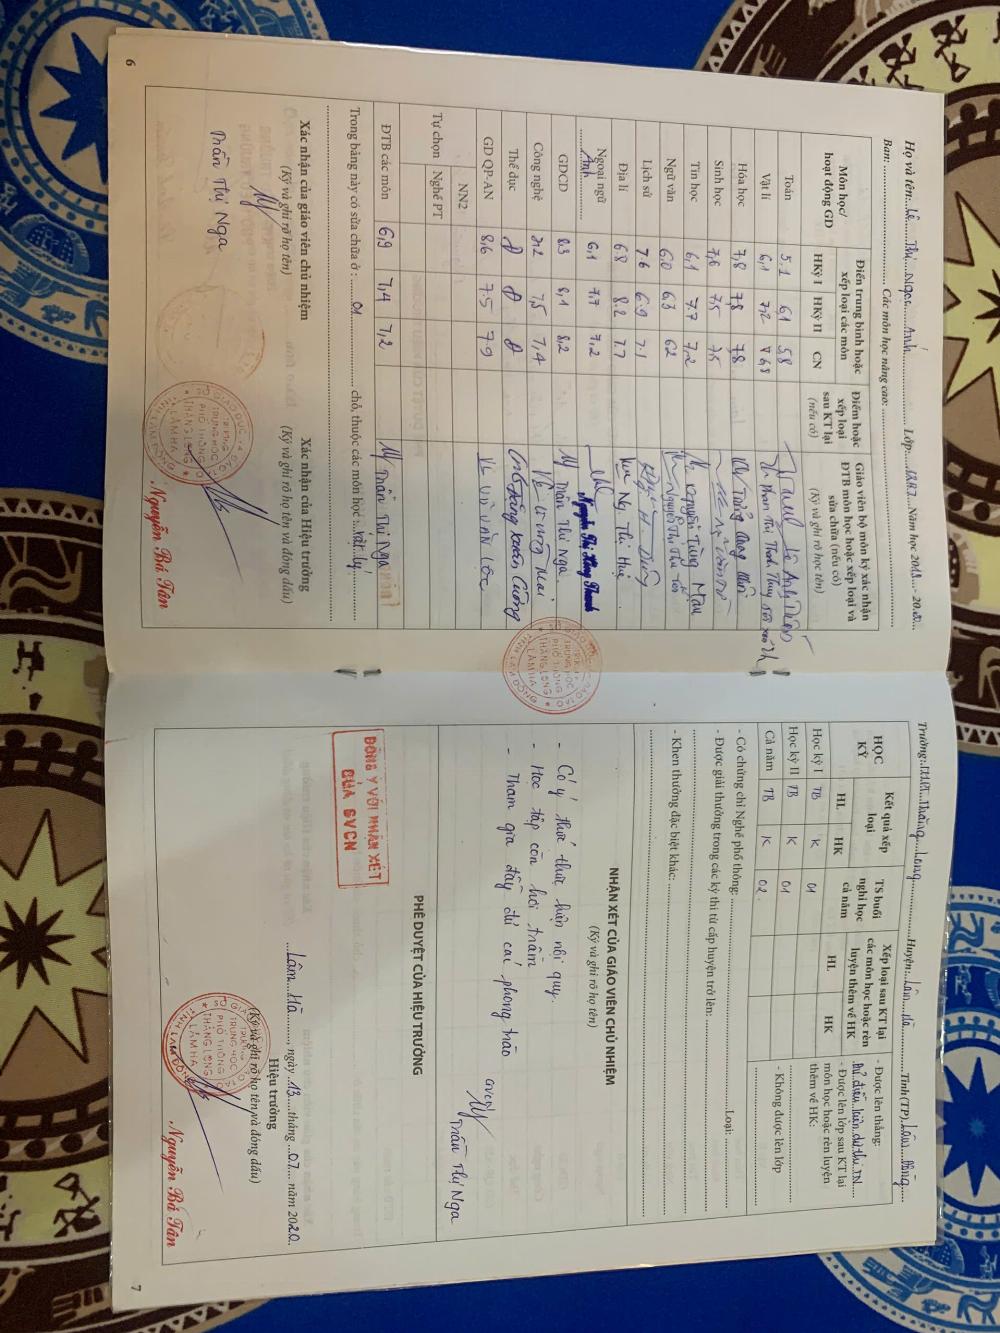 Họ và tên: Lê Thị Ngọc Ánh Lớp: 12A7 Năm học 2019 - 2020
Ban: ........ Các môn học nâng cao: ........
Môn học/ hoạt động GD | Điểm trung bình hoặc xếp loại các môn | Điểm hoặc xếp loại sau KT lại (nếu có) | Giáo viên bộ môn ký xác nhận ĐTB môn học hoặc xếp loại và sửa chữa (nếu có) (Ký và ghi rõ họ tên)
HKỳ I | HKỳ II | CN
Toán 5.1 6.1 5.8
Vật lí 6,1 7,2 6.8
Hóa học 7,8 7.8 7.8
Sinh học 7,6 7,5 7,5
Tin học 6,1 7.7 7,2 Nguyễn Tùng Mậu
Ngữ văn 6.0 6.3 6.2
Lịch sử 7.6 6.9 7.1
Địa lí 6.8 8.2 7.7 Ng Thị Huệ
Ngoại ngữ Anh 6,1 7,7 7,2
GDCD 8.3 8,1 8,2 Trần Thị Nga
Công nghệ 7,5 7,4
Thể dục Đ Đ Đ
GD QP-AN 8,6 7.5 7.9
Tự chọn NN2
Nghề PT
ĐTB các môn 6,9 7,4 7,2 Trần Thị Nga
Trong bảng này có sửa chữa ở: 01 chỗ, thuộc các môn học: Vật lý
Xác nhận của giáo viên chủ nhiệm
(Ký và ghi rõ họ tên)
Trần Thị Nga
Xác nhận của Hiệu trưởng
(Ký và ghi rõ họ tên và đóng dấu)
SỞ GIÁO DỤC VÀ ĐÀO TẠO
TRƯỜNG
TRUNG HỌC
PHỔ THÔNG
THĂNG LONG
LÂM HÀ
TỈNH LÂM ĐỒNG
Nguyễn Bá Tân
6
Trường: THPT Thăng Long Huyện: Lâm Hà Tỉnh (TP) Lâm Đồng
HỌC KỲ | Kết quả xếp loại | TS buổi nghỉ học cả năm | Xếp loại sau KT lại các môn học hoặc rèn luyện thêm về HK
HL | HK | HL | HK
Học kỳ I TB K 01
Học kỳ II TB K 01
Cả năm TB K 02
- Được lên thẳng:
Đủ điều kiện dự thi TN
- Được lên lớp sau KT lại môn học hoặc rèn luyện thêm về HK:
- Không được lên lớp
- Có chứng chỉ Nghề phổ thông: ........ Loại: ........
- Được giải thưởng trong các kỳ thi từ cấp huyện trở lên: ........
- Khen thưởng đặc biệt khác: ........
NHẬN XÉT CỦA GIÁO VIÊN CHỦ NHIỆM
(Ký và ghi rõ họ tên)
- Có ý thức thực hiện nội quy.
- Học tập còn hơi trầm
- Tham gia đầy đủ các phong trào
GVCN
Trần Thị Nga
PHÊ DUYỆT CỦA HIỆU TRƯỞNG
ĐỒNG Ý VỚI NHẬN XÉT
CỦA GVCN
Lâm Hà, ngày 13 tháng 07 năm 2020
Hiệu trưởng
(Ký và ghi rõ họ tên và đóng dấu)
SỞ GIÁO DỤC VÀ ĐÀO TẠO
TRƯỜNG
TRUNG HỌC
PHỔ THÔNG
THĂNG LONG
LÂM HÀ
TỈNH LÂM ĐỒNG
Nguyễn Bá Tân
7